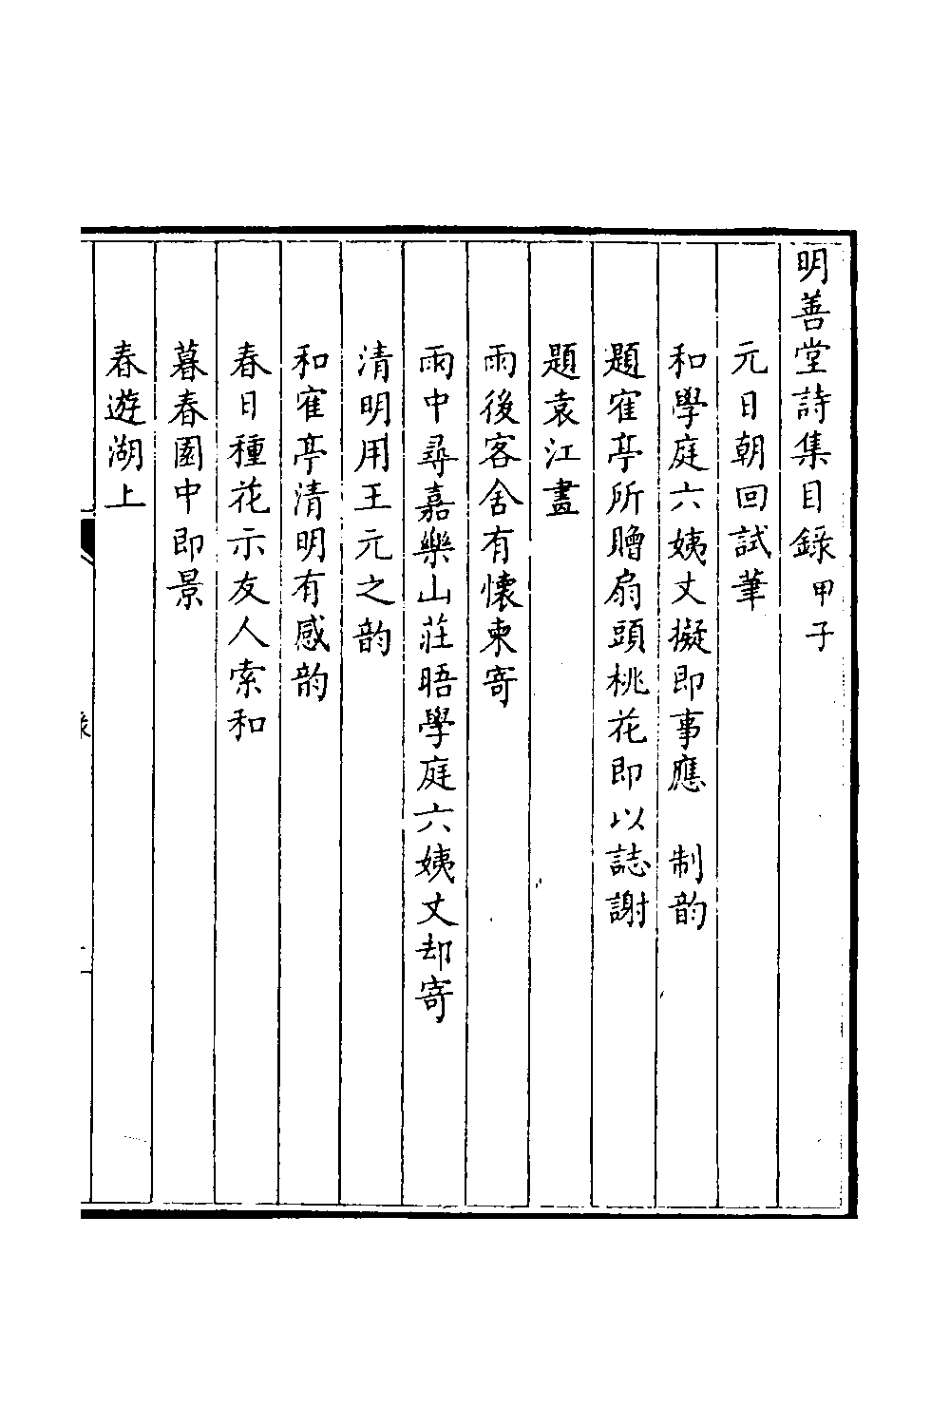 明善堂詩集目錄甲子
元日朝回試筆
和學庭六姨丈擬即事應 制韵
題寉亭所贈扇頭桃花即以誌謝
題袁江畫
雨後客舍有懷柬寄
雨中尋嘉樂山莊晤學庭六姨丈却寄
清明用王元之韵
和寉亭清明有感韵
春日種花示友人索和
暮春園中即景
春遊湖上